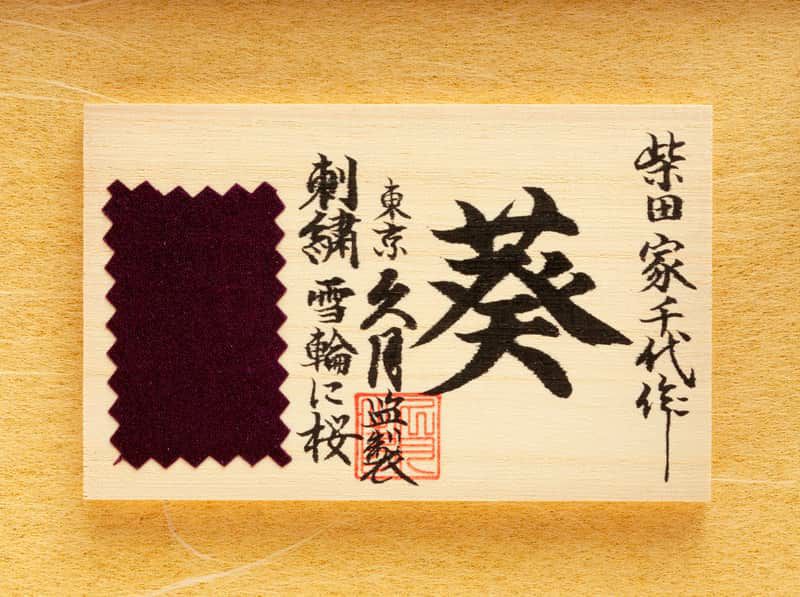 柴田家千代作
葵
東京久月監製
刺繍雪輪に桜